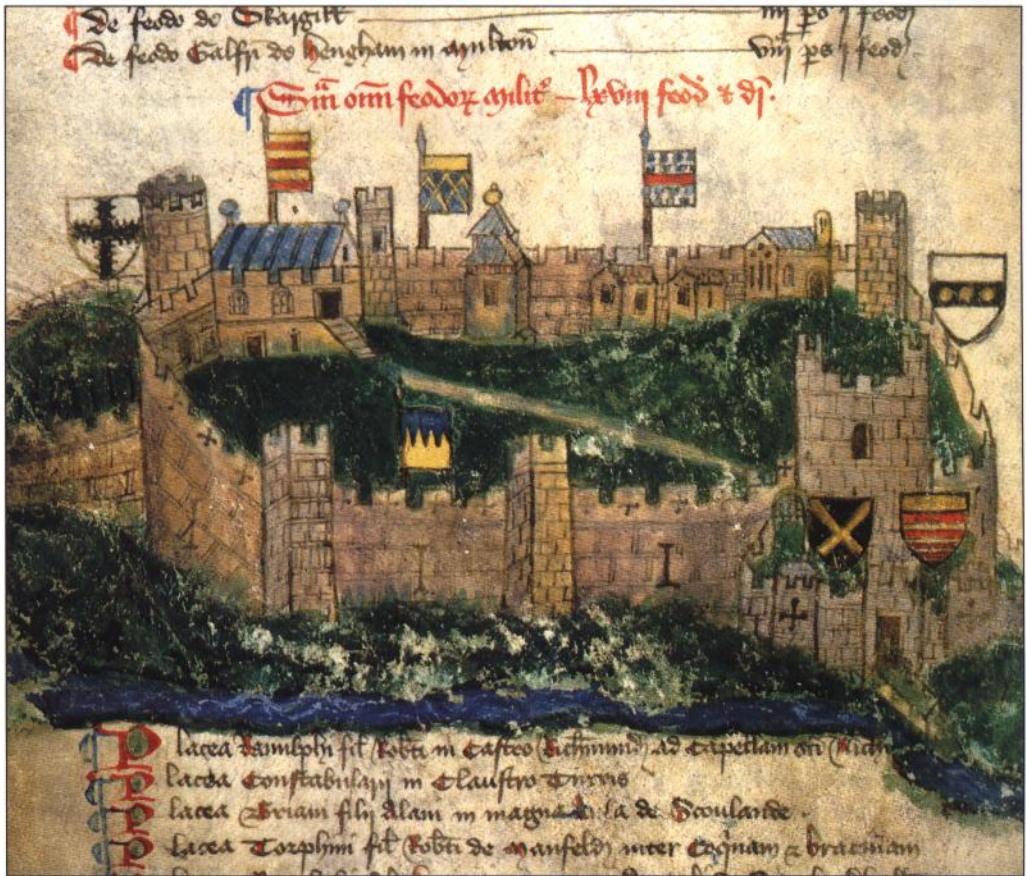 ¶ De feodo de Skargill ——— iiij ps j feod
¶ De feodo Galfri de Hengham in Multon ——— viij ps j feod
¶ Sm om feodoꝝ milit — lxviij feod & di.
Placea Ranulphi fil Robti in Castro Richmund ad Capellam sti Nich
Placea Constabularij in Claustro Turris
Placea Briani filij Alani in magna de Scoulande .
Placea Torphini fil Robti de Manfeld inter Coqnam & bracinam